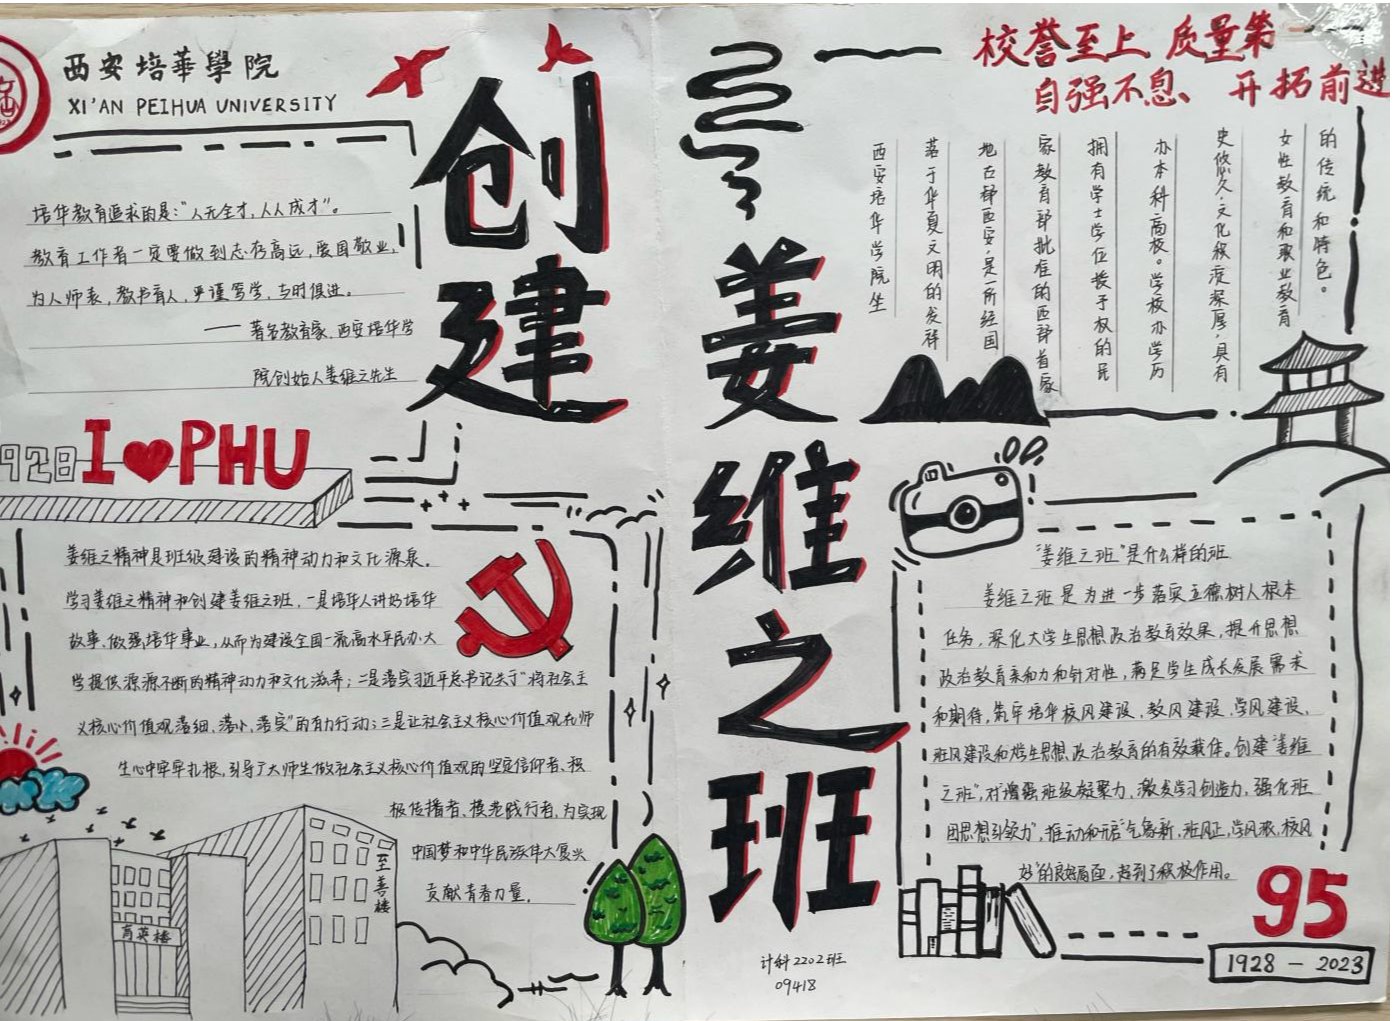 西安培華學院
XI'AN PEIHUA UNIVERSITY
创建
姜维之班
校誉至上 质量第一
自强不息、开拓前进
培华教育追求的是:“人无全才,人人成才”。
教育工作者一定要做到志存高远,爱国敬业,
为人师表,教书育人,严谨笃学,与时俱进。
——著名教育家、西安培华学
院创始人姜维之先生
西安培华学院坐
落于华夏文明的发祥
地古都西安,是一所经国
家教育部批准的西部首家
拥有学士学位授予权的民
办本科高校。学校办学历
史悠久,文化积淀深厚,具有
女性教育和职业教育
的传统和特色。
1928 I PHU
姜维之精神是班级建设的精神动力和文化源泉。
学习姜维之精神和创建姜维之班,一是培华人讲好培华
故事,做强培华事业,从而为建设全国一流高水平民办大
学提供源源不断的精神动力和文化滋养;二是落实习近平总书记关于“将社会主
义核心价值观落细、落小、落实”的有力行动;三是让社会主义核心价值观在师
生心中牢牢扎根,引导广大师生做社会主义核心价值观的坚定信仰者、积
极传播者、模范践行者,为实现
中国梦和中华民族伟大复兴
贡献青春力量。
育英楼
至善楼
“姜维之班”是什么样的班
姜维之班是为进一步落实立德树人根本
任务,深化大学生思想政治教育效果,提升思想
政治教育亲和力和针对性,满足学生成长发展需求
和期待,筑牢培华校风建设、教风建设、学风建设、
班风建设和学生思想政治教育的有效载体。创建“姜维
之班”,对“增强班级凝聚力,激发学习创造力,强化班
团思想引领力”,推动和培“气象新,班风正,学风浓,校风
好”的良好局面,起到了积极作用。
95
1928 - 2023
计科2202班
09418